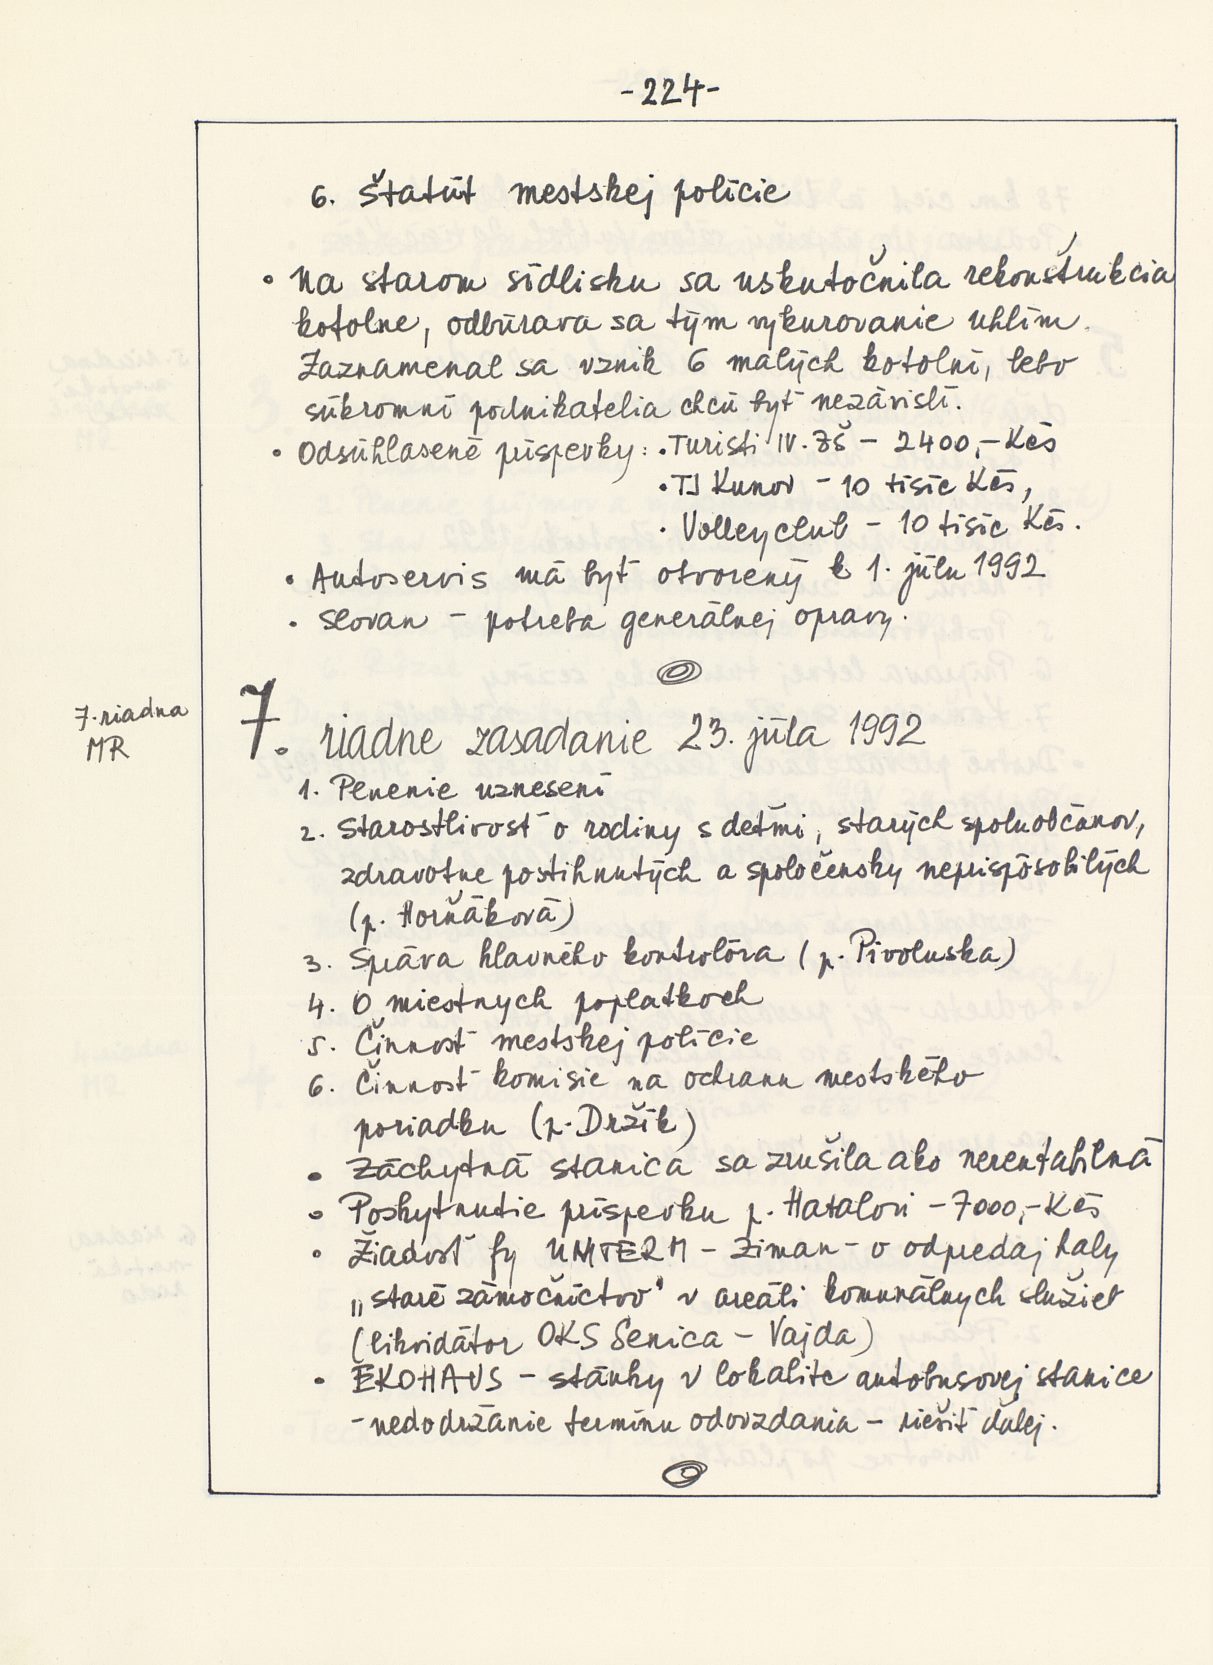 -224-
6. Štatút mestskej polície
• Na starom sídlisku sa uskutočnila rekonštrukcia
kotolne, odbúrava sa tým vykurovanie uhlím.
Zaznamenal sa vznik 6 malých kotolní, lebo
súkromní podnikatelia chcú byť nezávislí.
• Odsúhlasené príspevky: • Turisti IV. ZŠ - 2400,- Kčs
• TJ Kunov - 10 tisíc Kčs,
• Volleyclub - 10 tisíc Kčs.
• Autoservis má byť otvorený k 1. júlu 1992
• Slovan - potreba generálnej opravy.
7. riadna
MR
7. riadne zasadanie 23. júla 1992
1. Plnenie uznesení
2. Starostlivosť o rodiny s deťmi, starých spoluobčanov,
zdravotne postihnutých a spoločensky neprispôsobilých
(p. Horňáková)
3. Správa hlavného kontrolóra (p. Pivoluska)
4. O miestnych poplatkoch
5. Činnosť mestskej polície
6. Činnosť komisie na ochranu mestského
poriadku (p. Držík)
• Záchytná stanica sa zrušila ako nerentabilná
• Poskytnutie príspevku p. Hatalovi - 7000,- Kčs
• Žiadosť fy UNITERM - Ziman - o odpredaj haly
„staré zámočníctvo" v areáli komunálnych služieb
(likvidátor OKS Senica - Vajda)
• EKOHAUS - stánky v lokalite autobusovej stanice
- nedodržanie termínu odovzdania - riešiť ďalej.